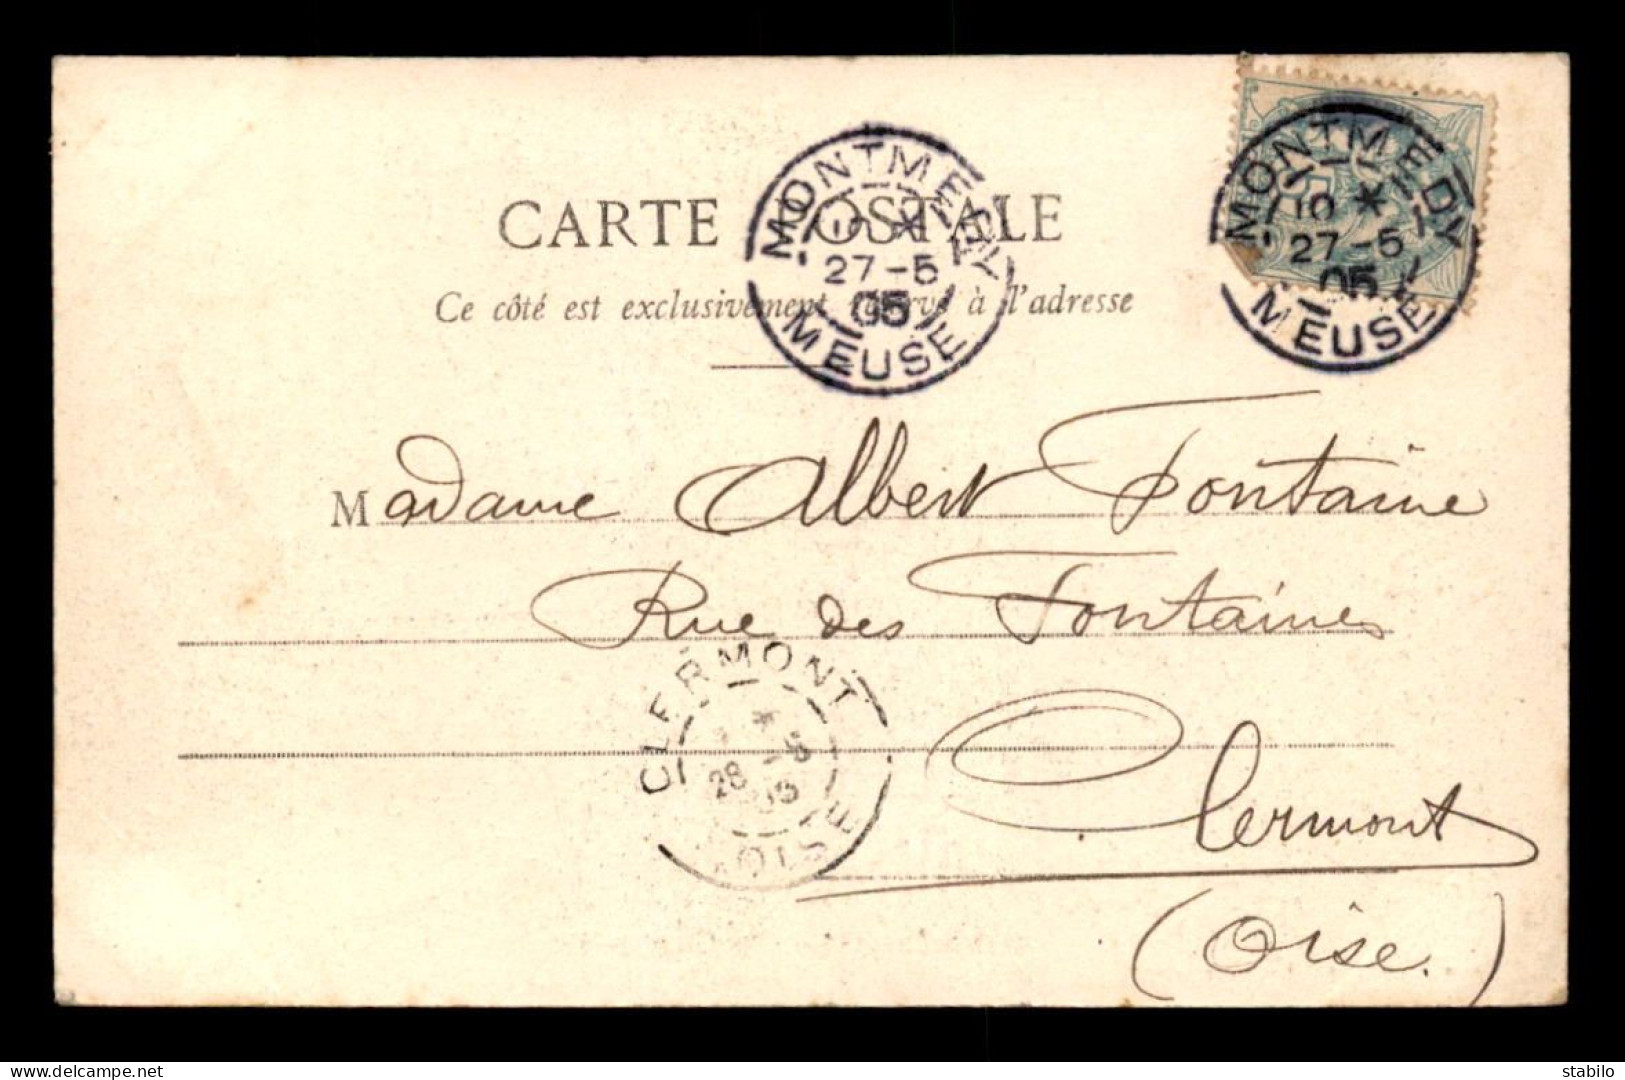 CARTE POSTALE
Ce côté est exclusivement réservé à l'adresse
MONTMEDY
10 *
27-5
05
MEUSE
MONTMEDY
10 *
27-5
05
MEUSE
Madame Albert Fontaine
Rue des Fontaines
Clermont
(Oise.)
CLERMONT
*
28 -5
05
OISE
delcampe.net
stabilo